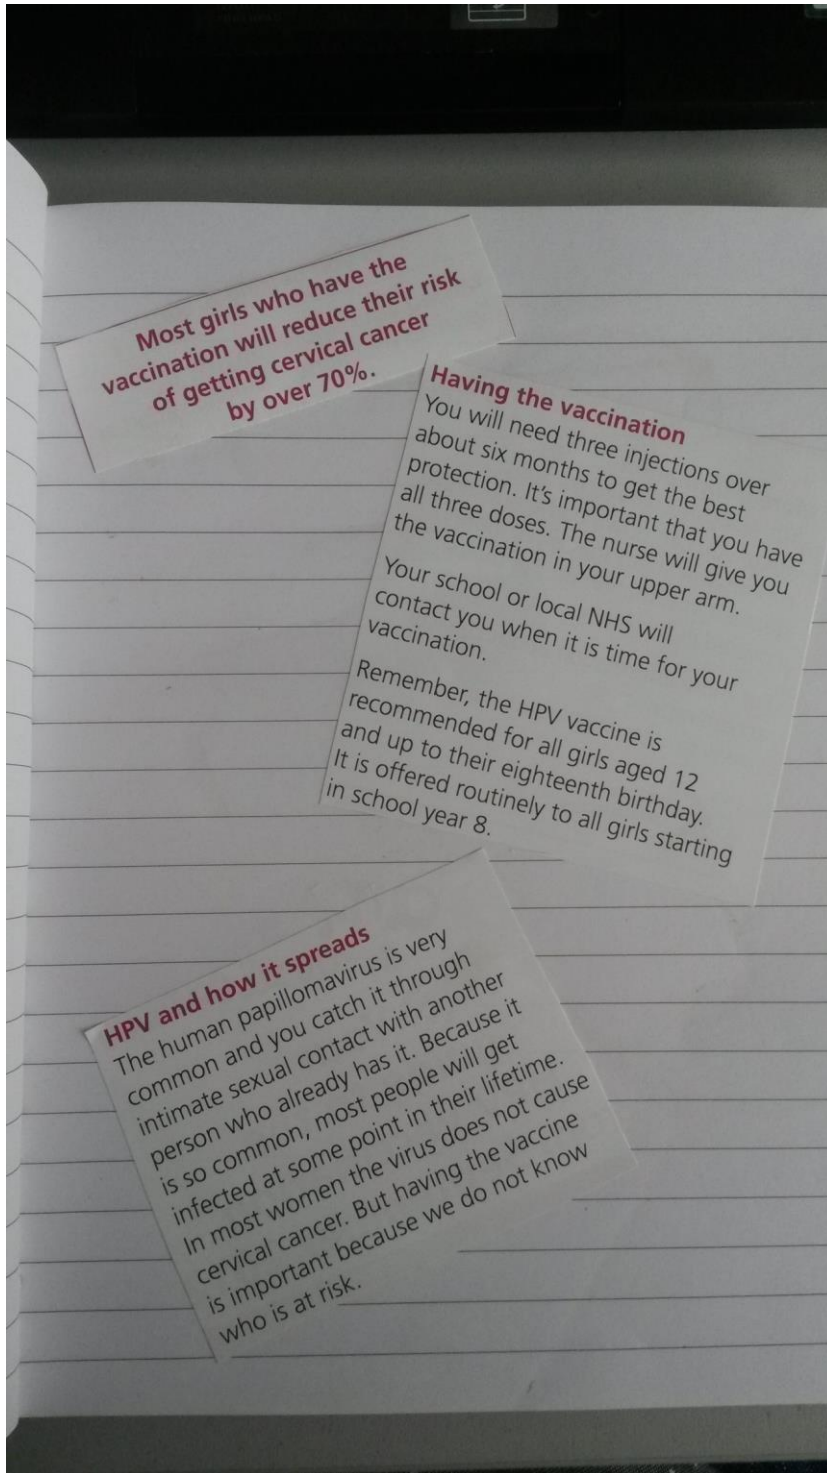 Most girls who have the
vaccination will reduce their risk
of getting cervical cancer
by over 70%.
Having the vaccination
You will need three injections over
about six months to get the best
protection. It's important that you have
all three doses. The nurse will give you
the vaccination in your upper arm.
Your school or local NHS will
contact you when it is time for your
vaccination.
Remember, the HPV vaccine is
recommended for all girls aged 12
and up to their eighteenth birthday.
It is offered routinely to all girls starting
in school year 8.
HPV and how it spreads
The human papillomavirus is very
common and you catch it through
intimate sexual contact with another
person who already has it. Because it
is so common, most people will get
infected at some point in their lifetime.
In most women the virus does not cause
cervical cancer. But having the vaccine
is important because we do not know
who is at risk.